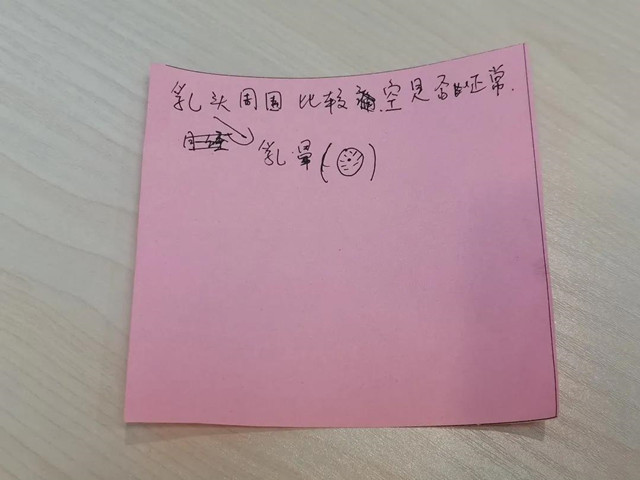 乳头周围比较空是否正常.
乳晕( )